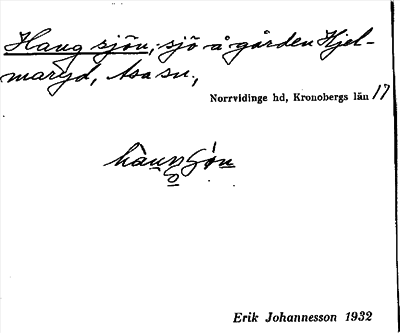 Haug sjön, sjö å gården Hjel-
maryd, Asa sn,
Norrvidinge hd, Kronobergs län 17
Erik Johannesson 1932